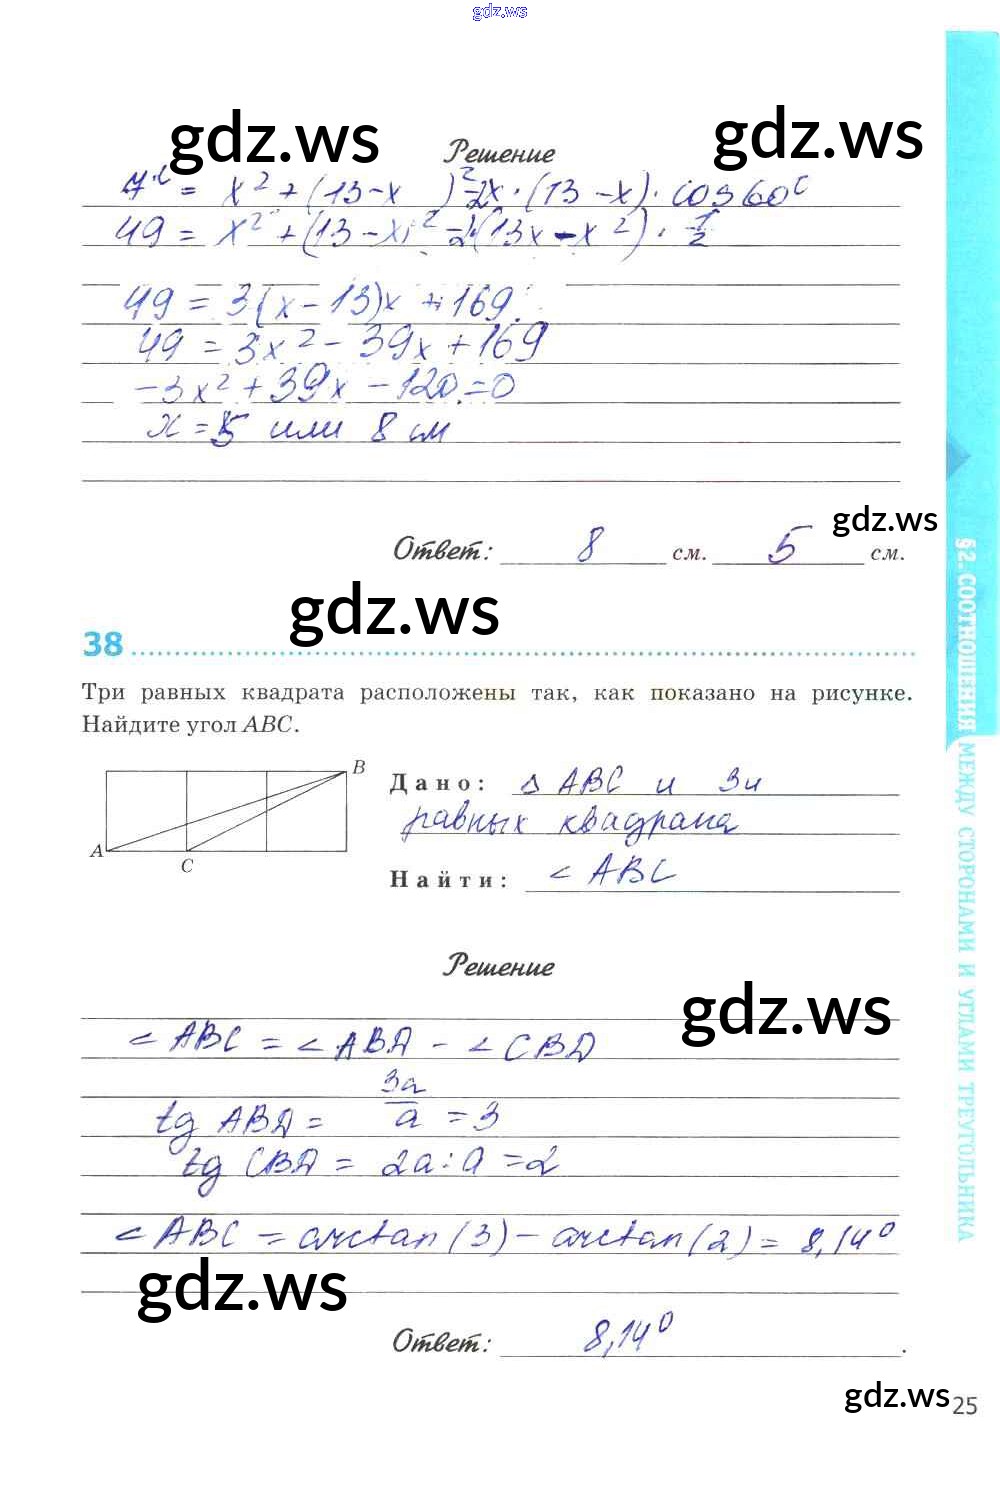 gdz.ws
gdz.ws
gdz.ws
Решение
7² = x² + (13-x)² - 2x·(13-x)·cos60°
49 = x² + (13-x)² - 2(13x-x²)·1/2
49 = 3(x-13)x + 169
49 = 3x² - 39x + 169
-3x² + 39x - 120 = 0
x = 5 или 8 см
gdz.ws
Ответ: 8 см. 5 см.
gdz.ws
38
Три равных квадрата расположены так, как показано на рисунке.
Найдите угол ABC.
B
A
C
Дано: Δ ABC и 3и
равных квадрата
Найти: ∠ ABC
Решение
gdz.ws
∠ ABC = ∠ ABD - ∠ CBD
tg ABD = 3a/a = 3
tg CBD = 2a : a = 2
∠ ABC = arctan(3) - arctan(2) = 8,14°
gdz.ws
Ответ: 8,14°.
gdz.ws
25
§2. СООТНОШЕНИЯ МЕЖДУ СТОРОНАМИ И УГЛАМИ ТРЕУГОЛЬНИКА